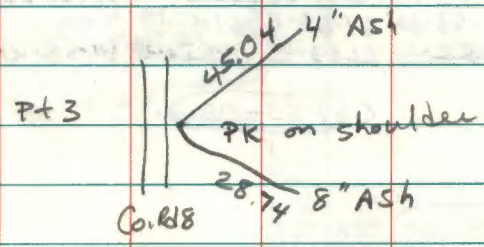 45.04 4" Ash
Pt 3
PK on shoulder
28.74 8" Ash
Co.Rd8